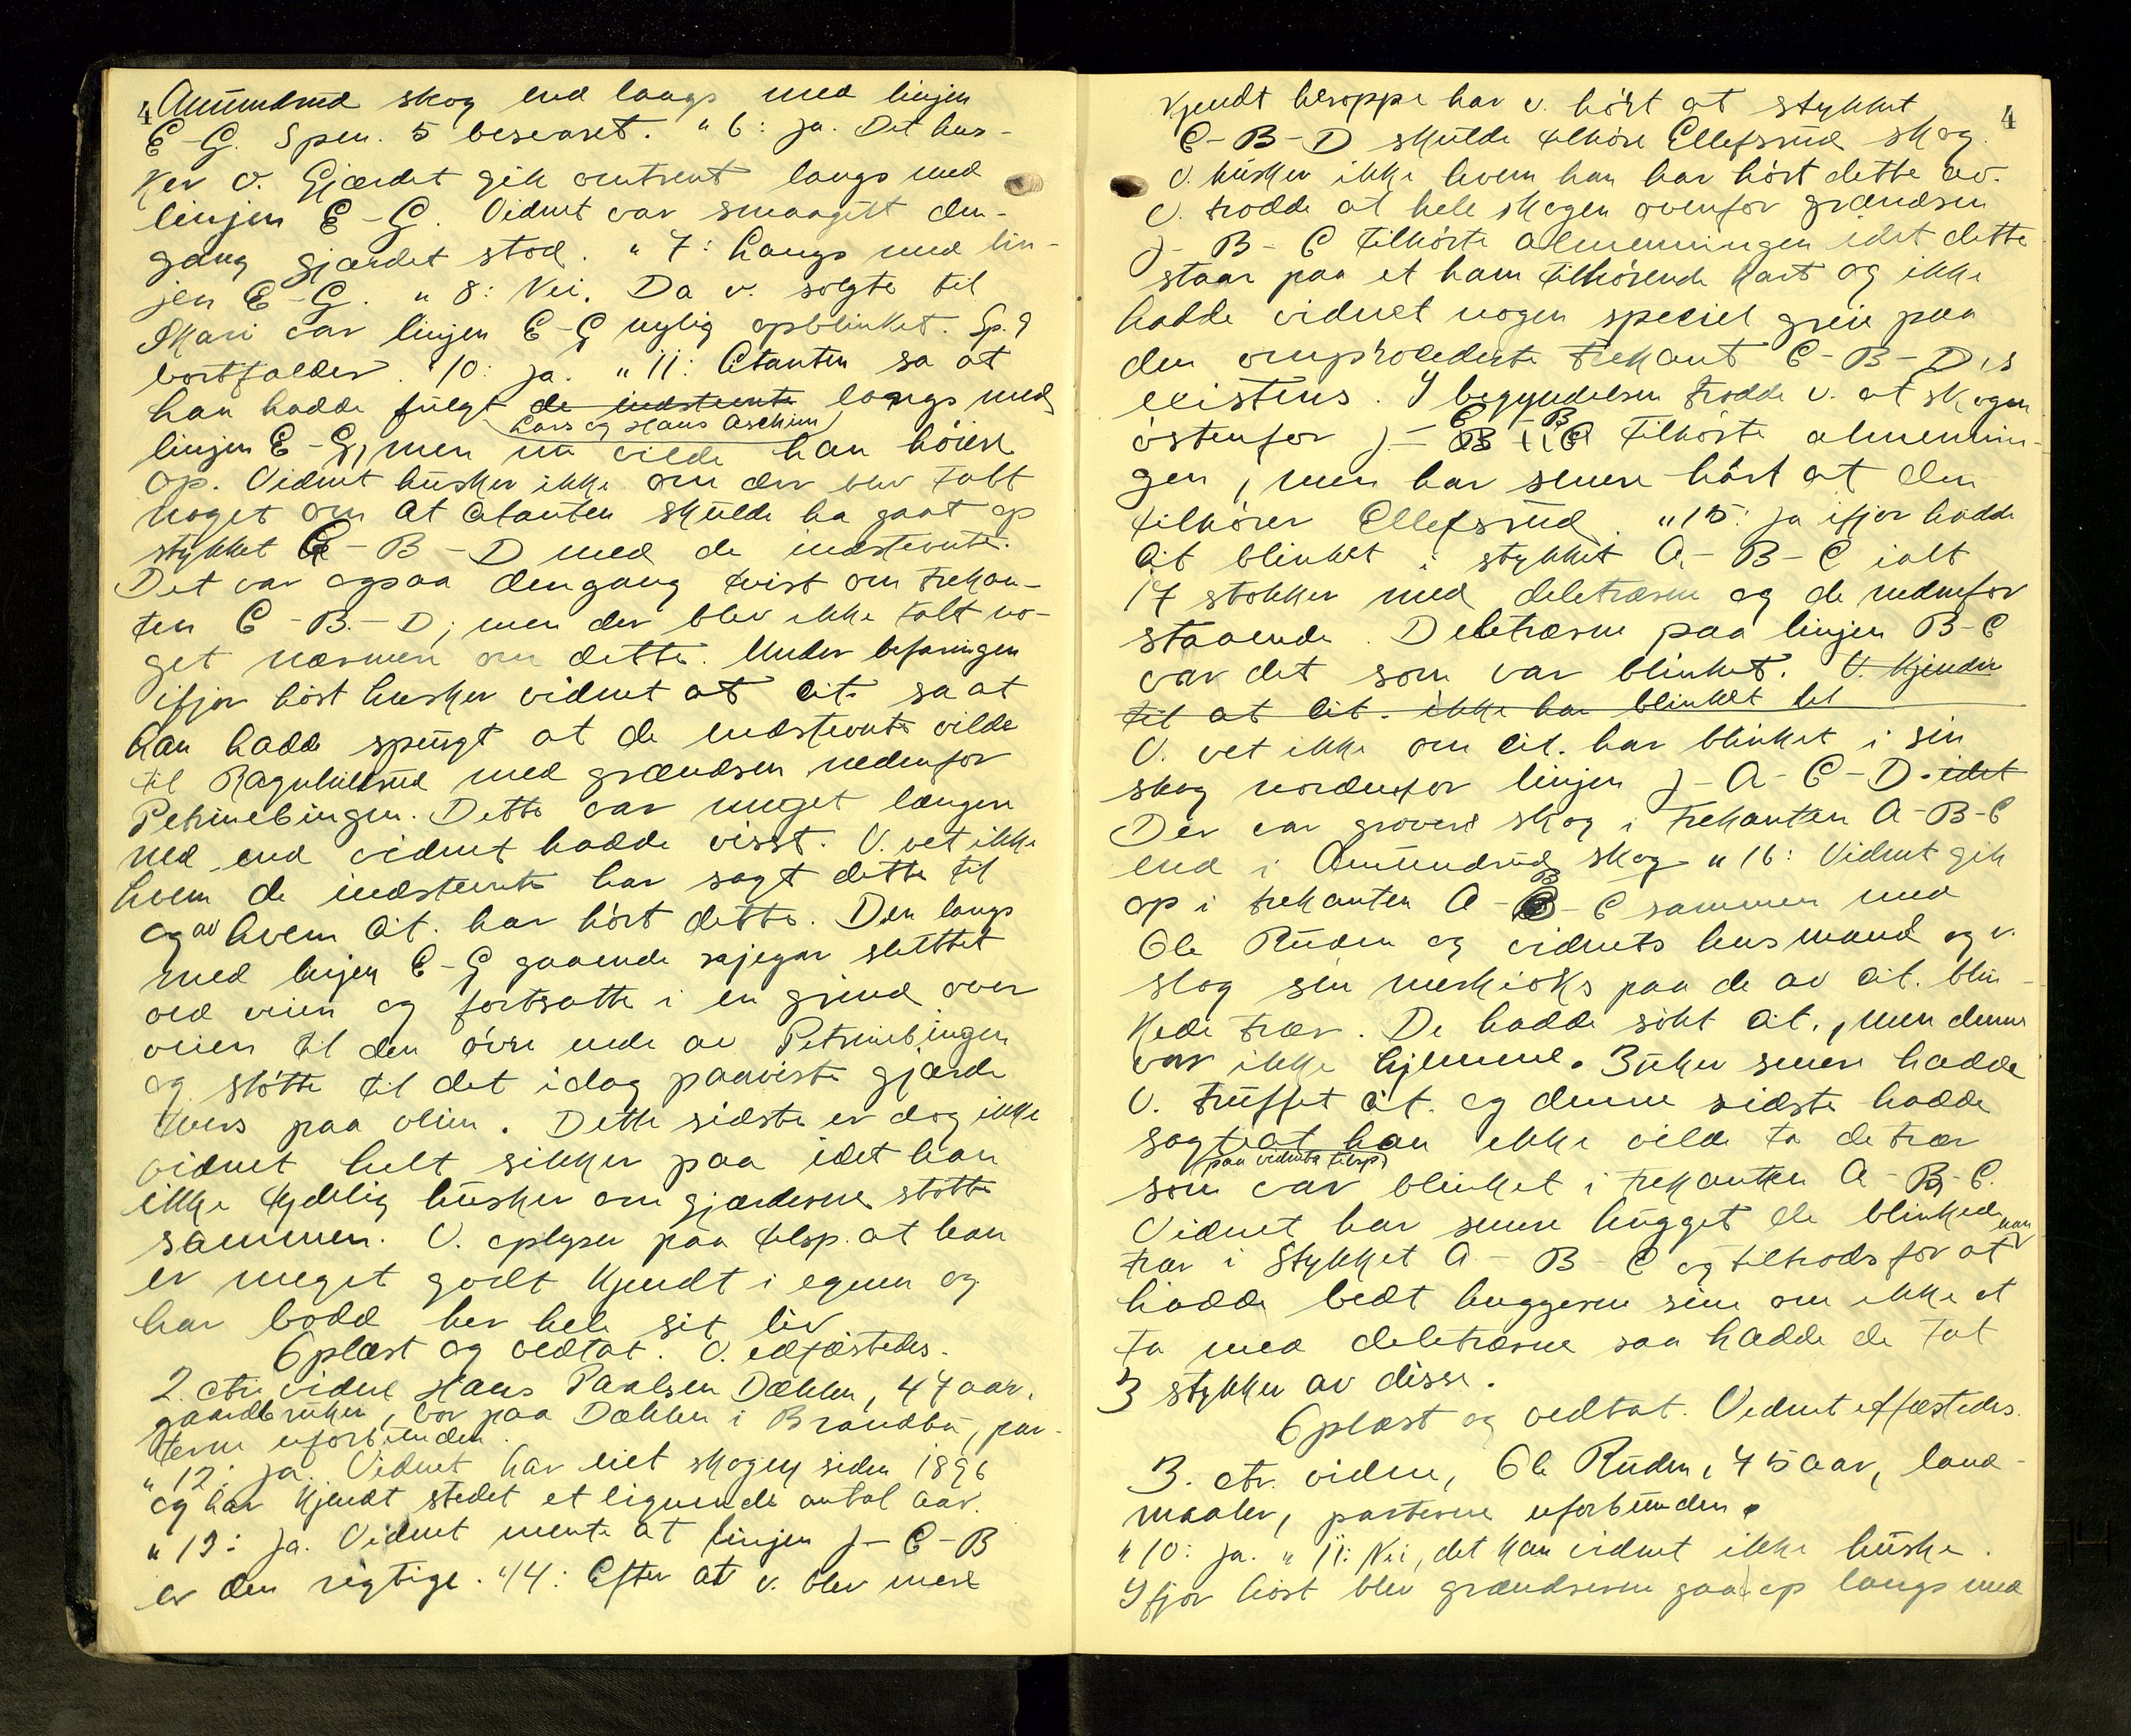 4
Amundrud skog end langs med linjen
E-G. Spm. 5 besvaret. " 6: Ja. Det hus-
ker v. Gjærdet gik omtrent langs med
linjen E-G. Vidnet var smaagut den-
gang gjærdet stod. " 7: Langs med lin-
jen E-G. " 8: Nei. Da v. solgte til
Skari var linjen E-G nylig opblinket. Sp. 9
bortfalder. " 10: Ja. " 11: Citanten sa at
han hadde fulgt de indstevnte langs med
Lars og Hans Aschim
linjen E-G, men nu vilde han høiere
op. Vidnet husker ikke om der blev talt
noget om at citanten skulde ha gaat op
stykket C-B-D med de indstevnte.
Det var ogsaa dengang tvist om trekan-
ten C-B-D; men der blev ikke talt no-
get nærmere om dette. Under befaringen
ifjor høst husker vidnet at cit. sa at
han hadde spurgt at de indstevnte vilde
til Ragnhildrud med grændsen nedenfor
Petrinebingen. Dette var meget længere
ned end vidnet hadde visst. V. vet ikke
hvem de indstevnte har sagt dette til
og av hvem cit. har hørt dette. Den langs
med linjen E-G gaaende sjegar sluttet
ved veien og fortsatte i en grind over
veien til den øvre ende av Petrinebingen
og støtte til det idag paaviste gjærde
tvers paa veien. Dette sidste er dog ikke
vidnet helt sikker paa idet han
ikke tydelig husker om gjærderne støtte
sammen. V. oplyser paa tilsp. at han
er meget godt kjendt i egnen og
har bodd her hele sit liv
Oplæst og vedtat. V. edfæstedes.
2. ctr. vidne Hans Paalsen Dæhlen, 47 aar,
gaardbruker, bor paa Dæhlen i Brandbu, par-
terne uforbunden.
" 12: Ja. Vidnet har eiet skogen siden 1896
og har kjendt stedet et lignende antal aar.
" 13: Ja. Vidnet mente at linjen J-C-B
er den rigtige. " 14: Efter at v. blev mere
4
kjendt heroppe har v. hørt at stykket
C-B-D skulde tilhøre Ellefsrud skog.
V. husker ikke hvem han har hørt dette av.
V. trodde at hele skogen ovenfor grændsen
J-B-C tilhørte almenningen idet dette
staar paa et ham tilhørende kart og ikke
hadde vidnet nogen speciel greie paa
den omprocederte trekant C-B-D's
existens. I begyndelsen trodde v. at skogen
C-B
østenfor J- tilhørte almennin-
gen, men har senere hørt at den
tilhører Ellefsrud. " 15: Ja ifjor hadde
cit blinket i stykket A-B-C ialt
17 stokker med deletrærne og de nedenfor
staaende. Deletrærne paa linjen B-C
var det som var blinket. V. kjender
til at cit. ikke har blinket let
V. vet ikke om cit. har blinket i sin
skog nordenfor linjen J-A-C-D. idet
Der var grovere skog i trekanten A-B-C
end i Amundrud skog " 16: Vidnet gik
op i trekanten A-B-C sammen med
Ole Ruden og vidnets husmand og v.
slog sin merkeøks paa de av cit. blin-
kede trær. De hadde søkt cit., men denne
var ikke hjemme. 3 uker senere hadde
V. truffet cit. og denne sidste hadde
sagt at han ikke vilde ta de trær
paa vidnets tilsp.
som var blinket i trekanten A-B-C.
Vidnet har senere hugget de blinkede
trær i stykket A-B-C og tiltrods for at han
hadde bedt huggerne sine om ikke at
ta med deletrærne saa hadde de tat
3 stykker av disse.
Oplæst og vedtat. Vidnet edfæstedes.
3. ctr. vidne, Ole Ruden, 45 aar, land-
maaler, parterne uforbunden.
" 10: Ja. " 11: Nei, det kan vidnet ikke huske.
Ifjor høst blev grændserne gaat op langs med